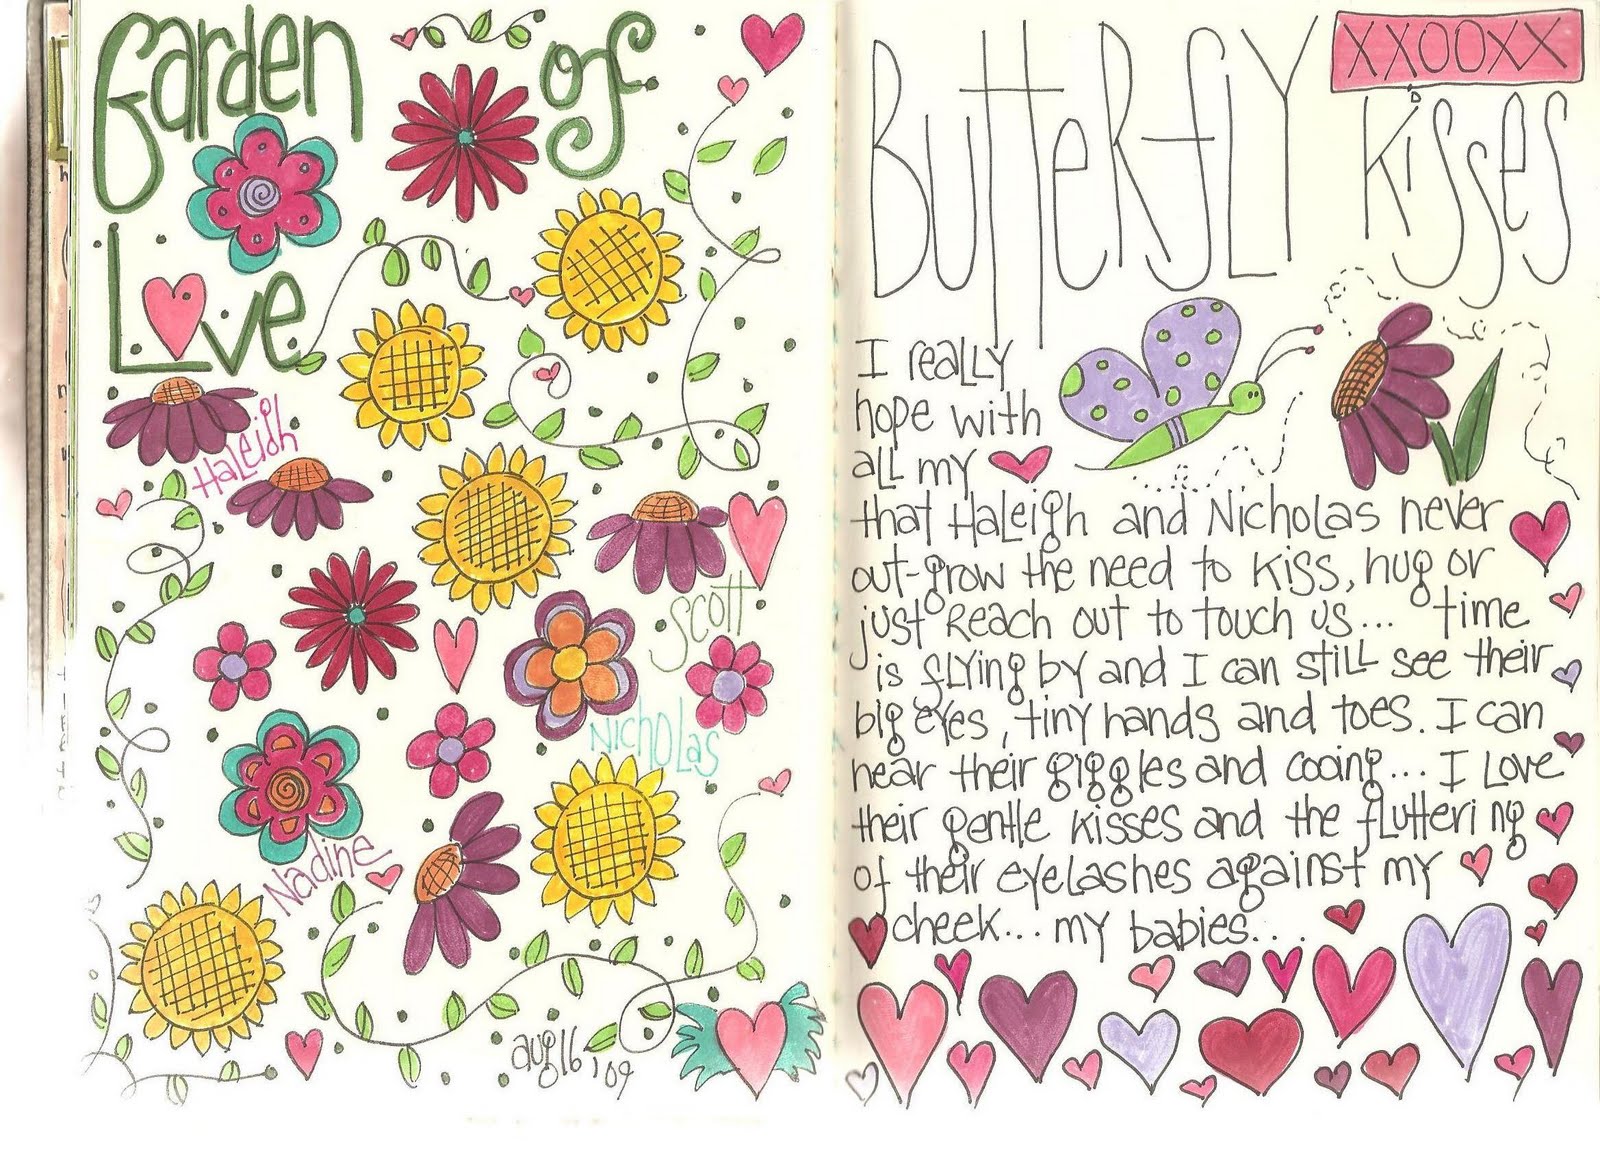 Garden of
Love
Haleigh
Scott
Nicholas
Nadine
aug 16, 09
XXOOXX
Butterfly Kisses
I really
hope with
all my
that Haleigh and Nicholas never
out-grow the need to kiss, hug or
just reach out to touch us... time
is flying by and I can still see their
big eyes, tiny hands and toes. I can
hear their giggles and cooing... I love
their gentle kisses and the fluttering
of their eyelashes against my
cheek... my babies...